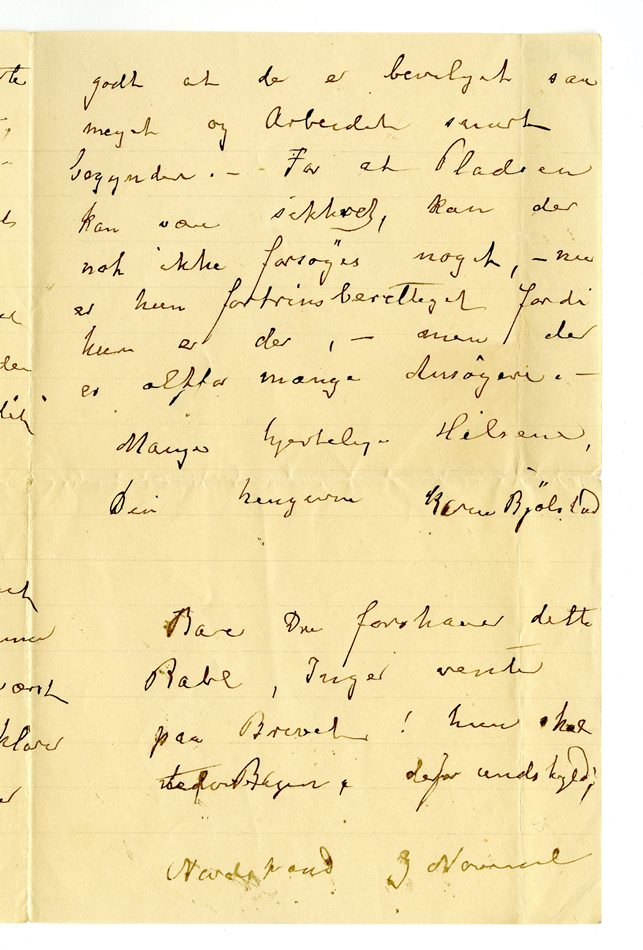 godt at de er bevilget saa
meget og Arbeidet snart
begynder. — For at Pladsen
kan være sikkret, kan der
nok ikke forsøges noget, — nu
er hun fortrinsberettiget fordi
hun er der, — men der
er altfor mange Ansøgere. —
Mange hjertelige Hilsener,
Din hengivne Karen Bjölstad
Bare Du forstaaer dette
Rabl, Inger venter
paa Brevet! hun skal
Byen, defor undskyld;
Nordstrand 3